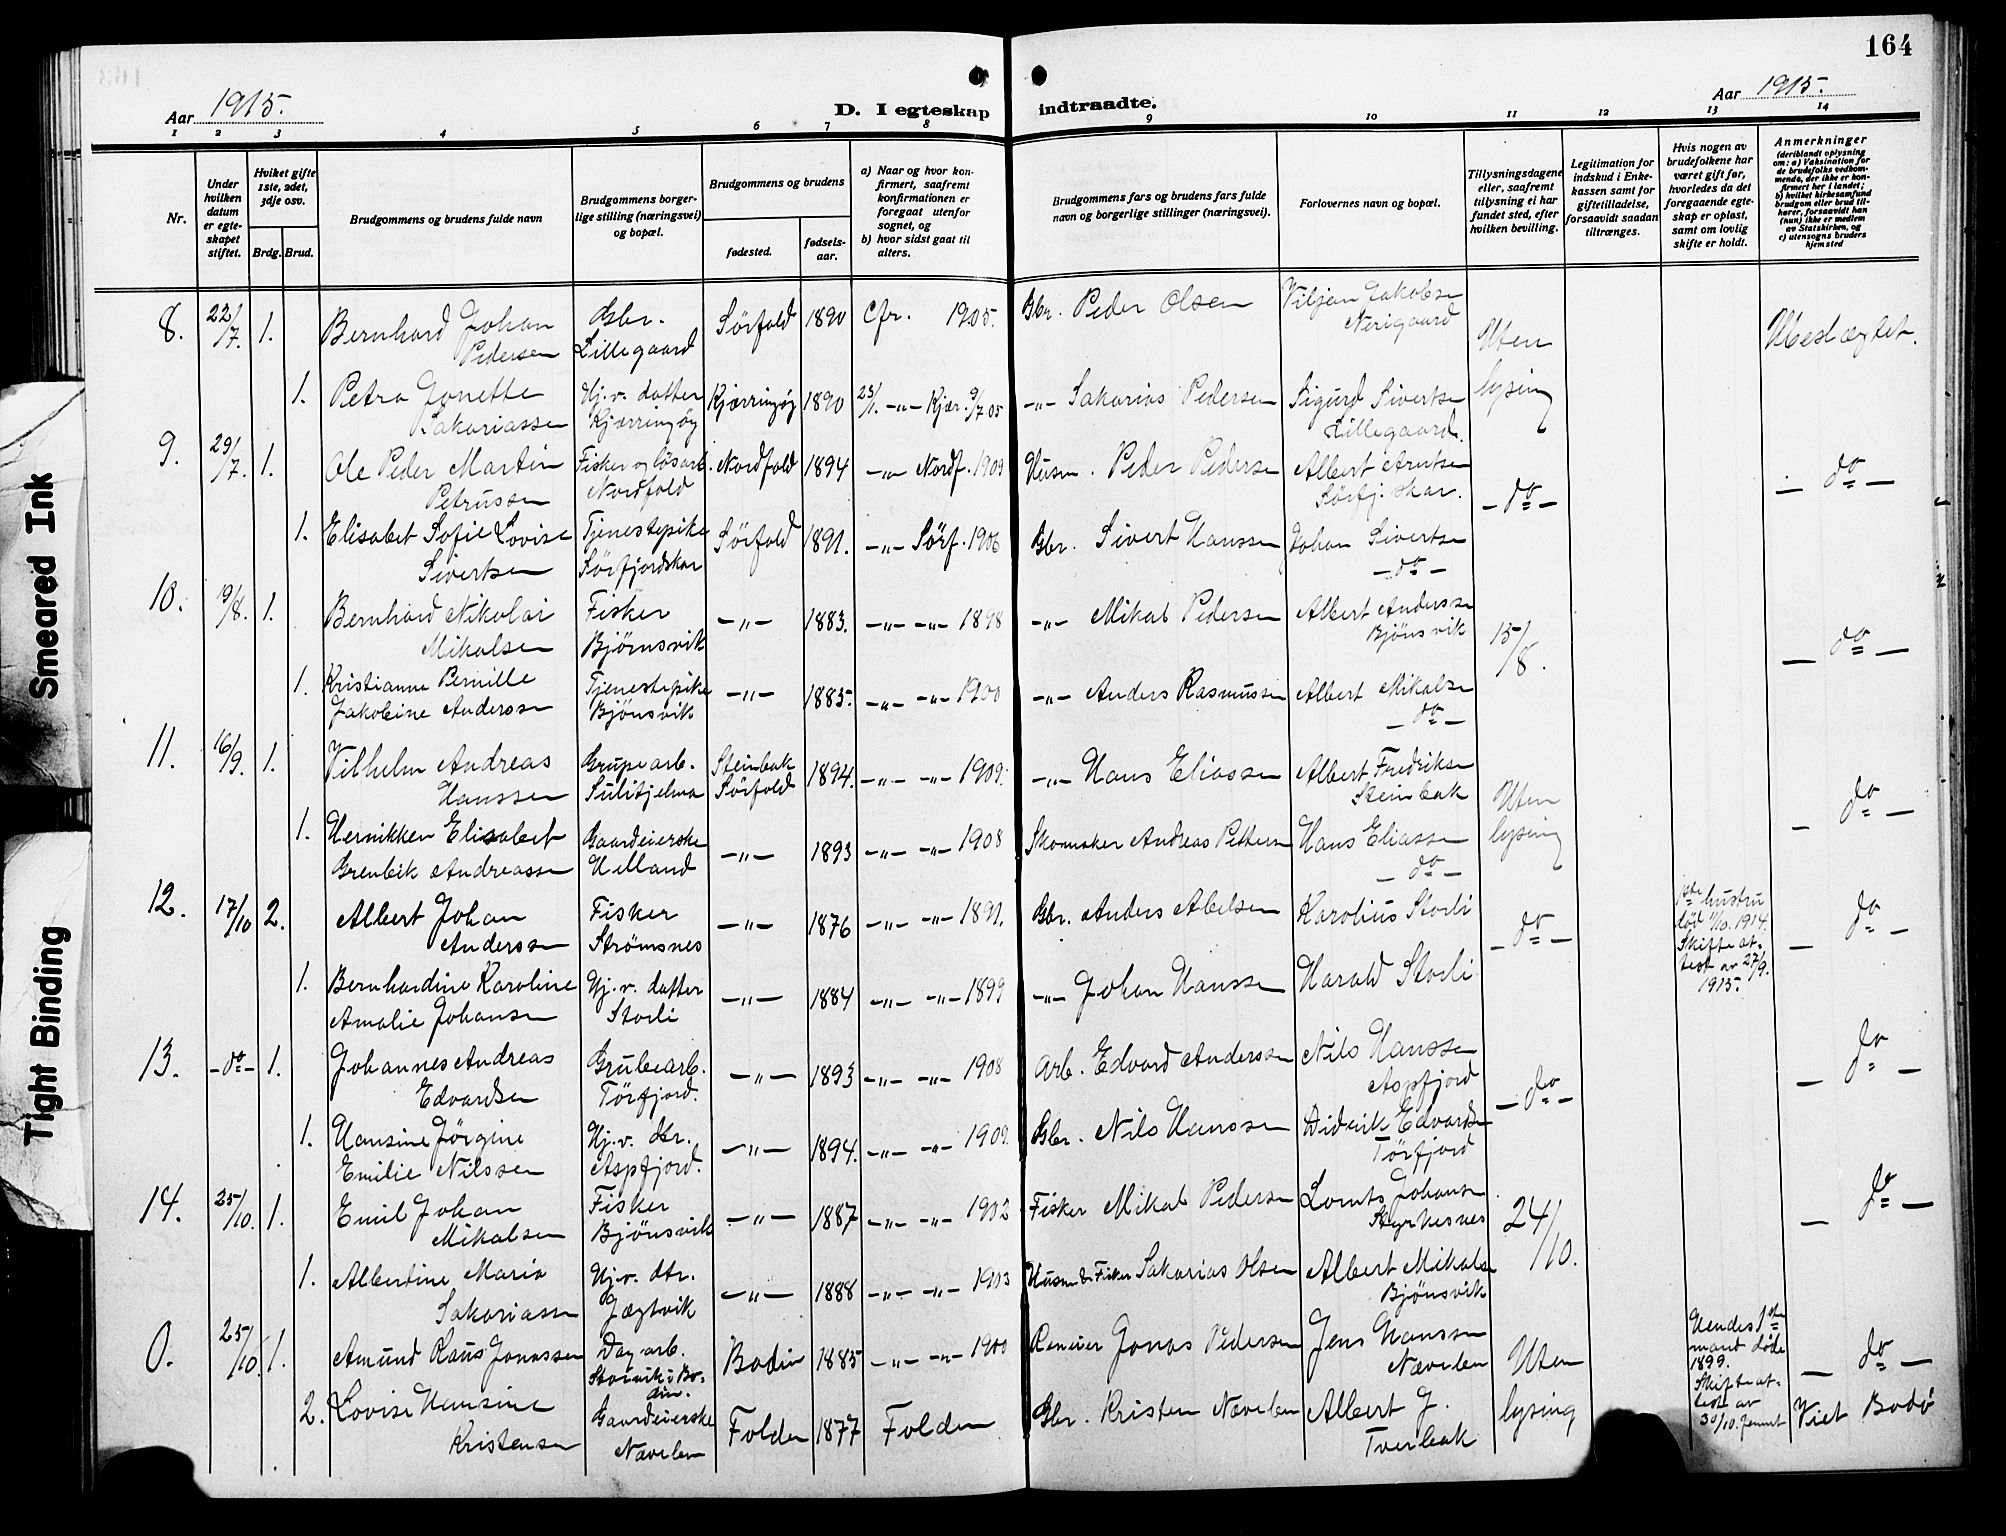 164
Aar 1915.
D. I egteskap indtraadte.
Aar 1915.
1 2 3 4 5 6 7 8 9 10 11 12 13 14
Nr.
Under hvilken datum er egteskapet stiftet.
Hviket gifte 1ste, 2det, 3dje osv.
Brdg. Brud.
Brudgommens og brudens fulde navn
Brudgommens borgerlige stilling (næringsvei) og bopæl.
Brudgommens og brudens
fødested.
fødselsaar.
a) Naar og hvor konfirmert, saafremt konfirmationen er foregaat utenfor sognet, og
b) hvor sidst gaat til alters.
Brudgommens fars og brudens fars fulde navn og borgerlige stillinger (næringsvei).
Forlovernes navn og bopæl.
Tillysningsdagene eller, saafremt tillysning ei har fundet sted, efter hvilken bevilling.
Legitimation for indskud i Enkekassen samt for giftetilladelse, forsaavidt saadan tiltrænges.
Hvis nogen av brudefolkene har været gift før, hvorledes da det foregaaende egteskap er opløst, samt om lovlig skifte er holdt.
Anmerkninger
(deriblandt oplysning om: a) Vaksination for de brudefolks vedkommende, der ikke er konfirmert her i landet; b) hvilket kirkesamfund brudgom eller brud tilhører, forsaavidt han (hun) ikke er medlem av Statskirken, og c) utensogns bruders hjemsted
8. 22/7. 1. Bernhard Johan Pedersen Gbr. Lillegaard Sörfold 1890 Cfr. 1905. Gbr. Peder Olsen Viljan Jakobsen Nerigaard Uten lysing Ubeslægtet.
1. Petra Jonette Sakariassen Hj.v. datter Kjærringöy Kjærringöy 1890 23/1. -"- Kjær. 9/7 05 -"- Sakarias Pedersen Sigurd Sivertsen Lillegaard.
9. 29/7. 1. Ole Peder Martin Petrussen Fisker og lösarb. Nordfold Nordfold 1894 -"- Nordf. 1909 Husm. Peder Pedersen Albert Arntsen Sörfj.skar. - do - - do -
1. Elisabet Sofie Lovise Sivertsen Tjenestepike Sörfjordskar Sörfold 1891. -"- Sörf. 1906 Gbr. Sivert Hanssen Johan Sivertsen - do -
10. 9/8. 1. Bernhard Nikolai Mikalsen Fisker Björnsvik -"- 1883. -"- -"- 1898 -"- Mikal Pedersen Albert Anderssen Bjönsvik 15/8. - do -
1. Kristianne Pernille Jakobine Anderssen Tjenestepike Bjönsvik -"- 1885. -"- -"- 1900 -"- Anders Rasmussen Albert Mikalsen - do -
11. 16/9. 1. Vilhelm Andreas Hanssen Grupearb. Sulitjelma Steinbak Sörfold 1894. -"- -"- 1909. -"- Hans Eliassen Albert Fredriksen Steinbak Uten lysing - do -
1. Henrikken Elisabet Grenbik Andreassen Gaardeierske Helland -"- 1893 -"- -"- 1908 Skomaker Andreas Pettersen Hans Eliassen - do -
12. 17/10 2. Albert Johan Anderssen Fisker Strömsnes -"- 1876 -"- -"- 1891. Gbr. Anders Abelsen Karolius Storli - do - 1ste hustru död 11/10. 1914. Skifteattest av 27/9. 1915. - do -
1. Bernhardine Karoline Amalie Johansen Hj.v. datter Storli -"- 1884 -"- -"- 1899 -"- Johan Hanssen Harald Storli
13. - do - 1. Johannes Andreas Edvardsen Grubearb. Törfjord. -"- 1893 -"- -"- 1908 Arb. Edvard Anderssen Nils Hanssen Aspfjord - do - - do -
1. Hansine Jörgine Emilie Nilssen Hj.v. dtr. Aspfjord. -"- 1894. -"- -"- 1909. Gbr. Nils Hanssen Diderik Edvardsen Törfjord
14. 25/10. 1. Emil Johan Mikalsen Fisker Bjönsvik -"- 1887 -"- -"- 1902 Fisker Mikal Pedersen Lornts Johansen Styrkesnes 24/10. - do -
1. Albertine Maria Sakariassen Hj.v. dtr. Jægtvik -"- 1888 -"- -"- 1903 Husm & Fisker Sakarias Olsen Albert Mikalsen Bjönsvik
0. 25/10. 1. Amund Raus Jonassen Dagarb. Störvik i Bodin. Bodin 1885 -"- -"- 1900 Jonas Pedersen Jens Hanssen Nævelen Uten lysing Hendes 1ste mand döde 1899. Skifteattest av 30/10. - do -
2. Lovise Hansine Kristensen Gaardeierske Nævelen Folden 1877 Folden Gbr. Kristen Nævelen Albert J. Tverbak Viet Bodö
Smeared Ink
Tight Binding